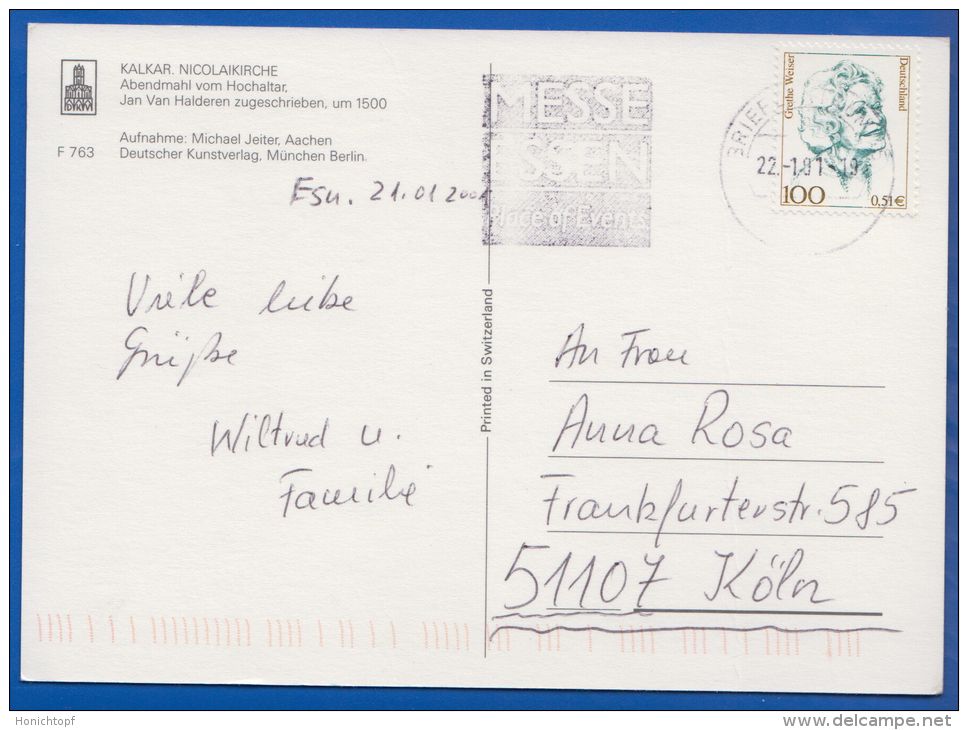 KALKAR. NICOLAIKIRCHE
Abendmahl vom Hochaltar,
Jan Van Halderen zugeschrieben, um 1500
Aufnahme: Michael Jeiter, Aachen
F 763 Deutscher Kunstverlag, München Berlin
DKVM
Esn. 21.01 2001
Viele liebe
Grüße
Wiltrud u.
Familie
Printed in Switzerland
MESSE
ESSEN
Place of Events
22.-1.01-19
Grethe Weiser
Deutschland
100 0,51€
An Frau
Anna Rosa
Frankfurterstr. 585
51107 Köln
Honichtopf
delcampe.net